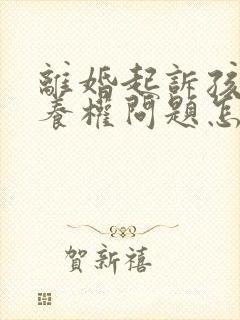 離婚起訴孩
養權問題怎
賀新禧